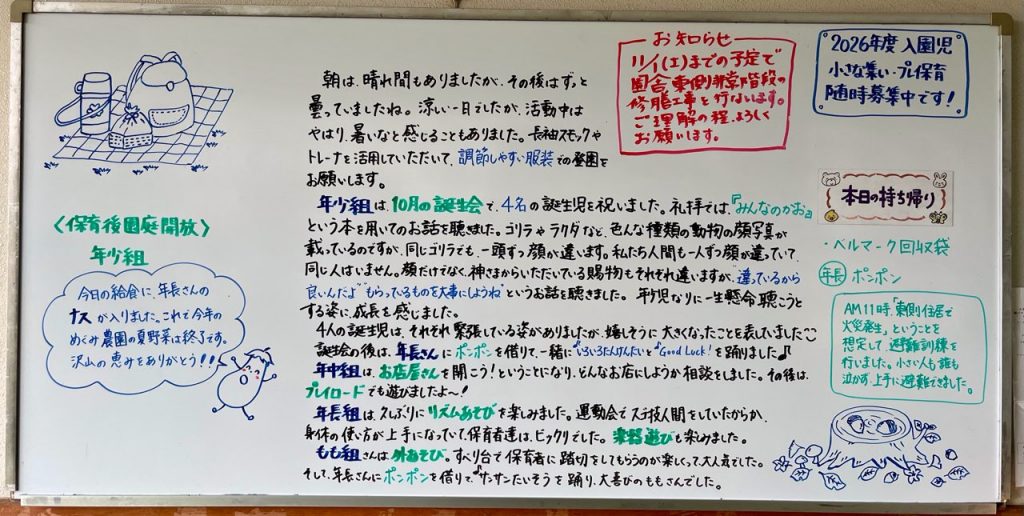 朝は、晴れ間もありましたが、その後はずっと
曇っていましたね。涼しい一日でしたが、活動中は
やはり、暑いなと感じることもありました。長袖スモックや
トレーナを活用していただいて、調節しやすい服装での登園を
お願いします。
年少組は、10月の誕生会で、4名の誕生児を祝いました。礼拝では、『みんなのかお』
という本を用いてのお話を聴きました。ゴリラやラクダなど、色んな種類の動物の顔写真が
載っているのですが、同じゴリラでも、一頭ずつ顔が違います。私たち人間も一人ずつ顔が違っていて、
同じ人はいません。顔だけでなく、神さまからいただいている賜物もそれぞれ違いますが、"違っているから
良いんだよ""もらっているものを大事にしようね"というお話を聴きました。年少児なりに一生懸命聴こうと
する姿に、成長を感じました。
4人の誕生児は、それぞれ緊張している姿がありましたが、嬉しそうに大きくなったことを表していました
誕生会の後は、年長さんにポンポンを借りて、一緒に"いろいろたんけんたい"と"Good Luck!"を踊りました♪
年中組は、お店屋さんを開こう!ということになり、どんなお店にしようか相談をしました。その後は、
プレイロードでも遊びましたよ〜!
年長組は、久しぶりにリズムあそびを楽しみました。運動会で
をしていたからか、
身体の使い方が上手になっていて、保育者達は、ビックリでした。楽器遊びも楽しみました。
もも組さんは、外あそび。すべり台で保育者に踏切をしてもらうのが楽しくって、大人気でした。
そして、年長さんにポンポンを借りて、"サンサンたいそう"を踊り、大喜びのももさんでした。
〈保育後園庭開放〉
年少組
今日の給食に、年長さんの
ナスが入りました。これで今年の
めぐみ農園の夏野菜は終了です。
沢山の恵みをありがとう!!
お知らせ
までの予定で
園舎東側非常階段の
修繕工事を行ないます。
ご理解の程、よろしく
お願いします。
2026年度 入園児
小さな集い・プレ保育
随時募集中です!
本日の持ち帰り
・ベルマーク回収袋
年長 ポンポン
AM11時、「東側住居で
火災発生」ということを
想定して、避難訓練を
行いました。小さい人も誰も
泣かず、上手に避難できました。